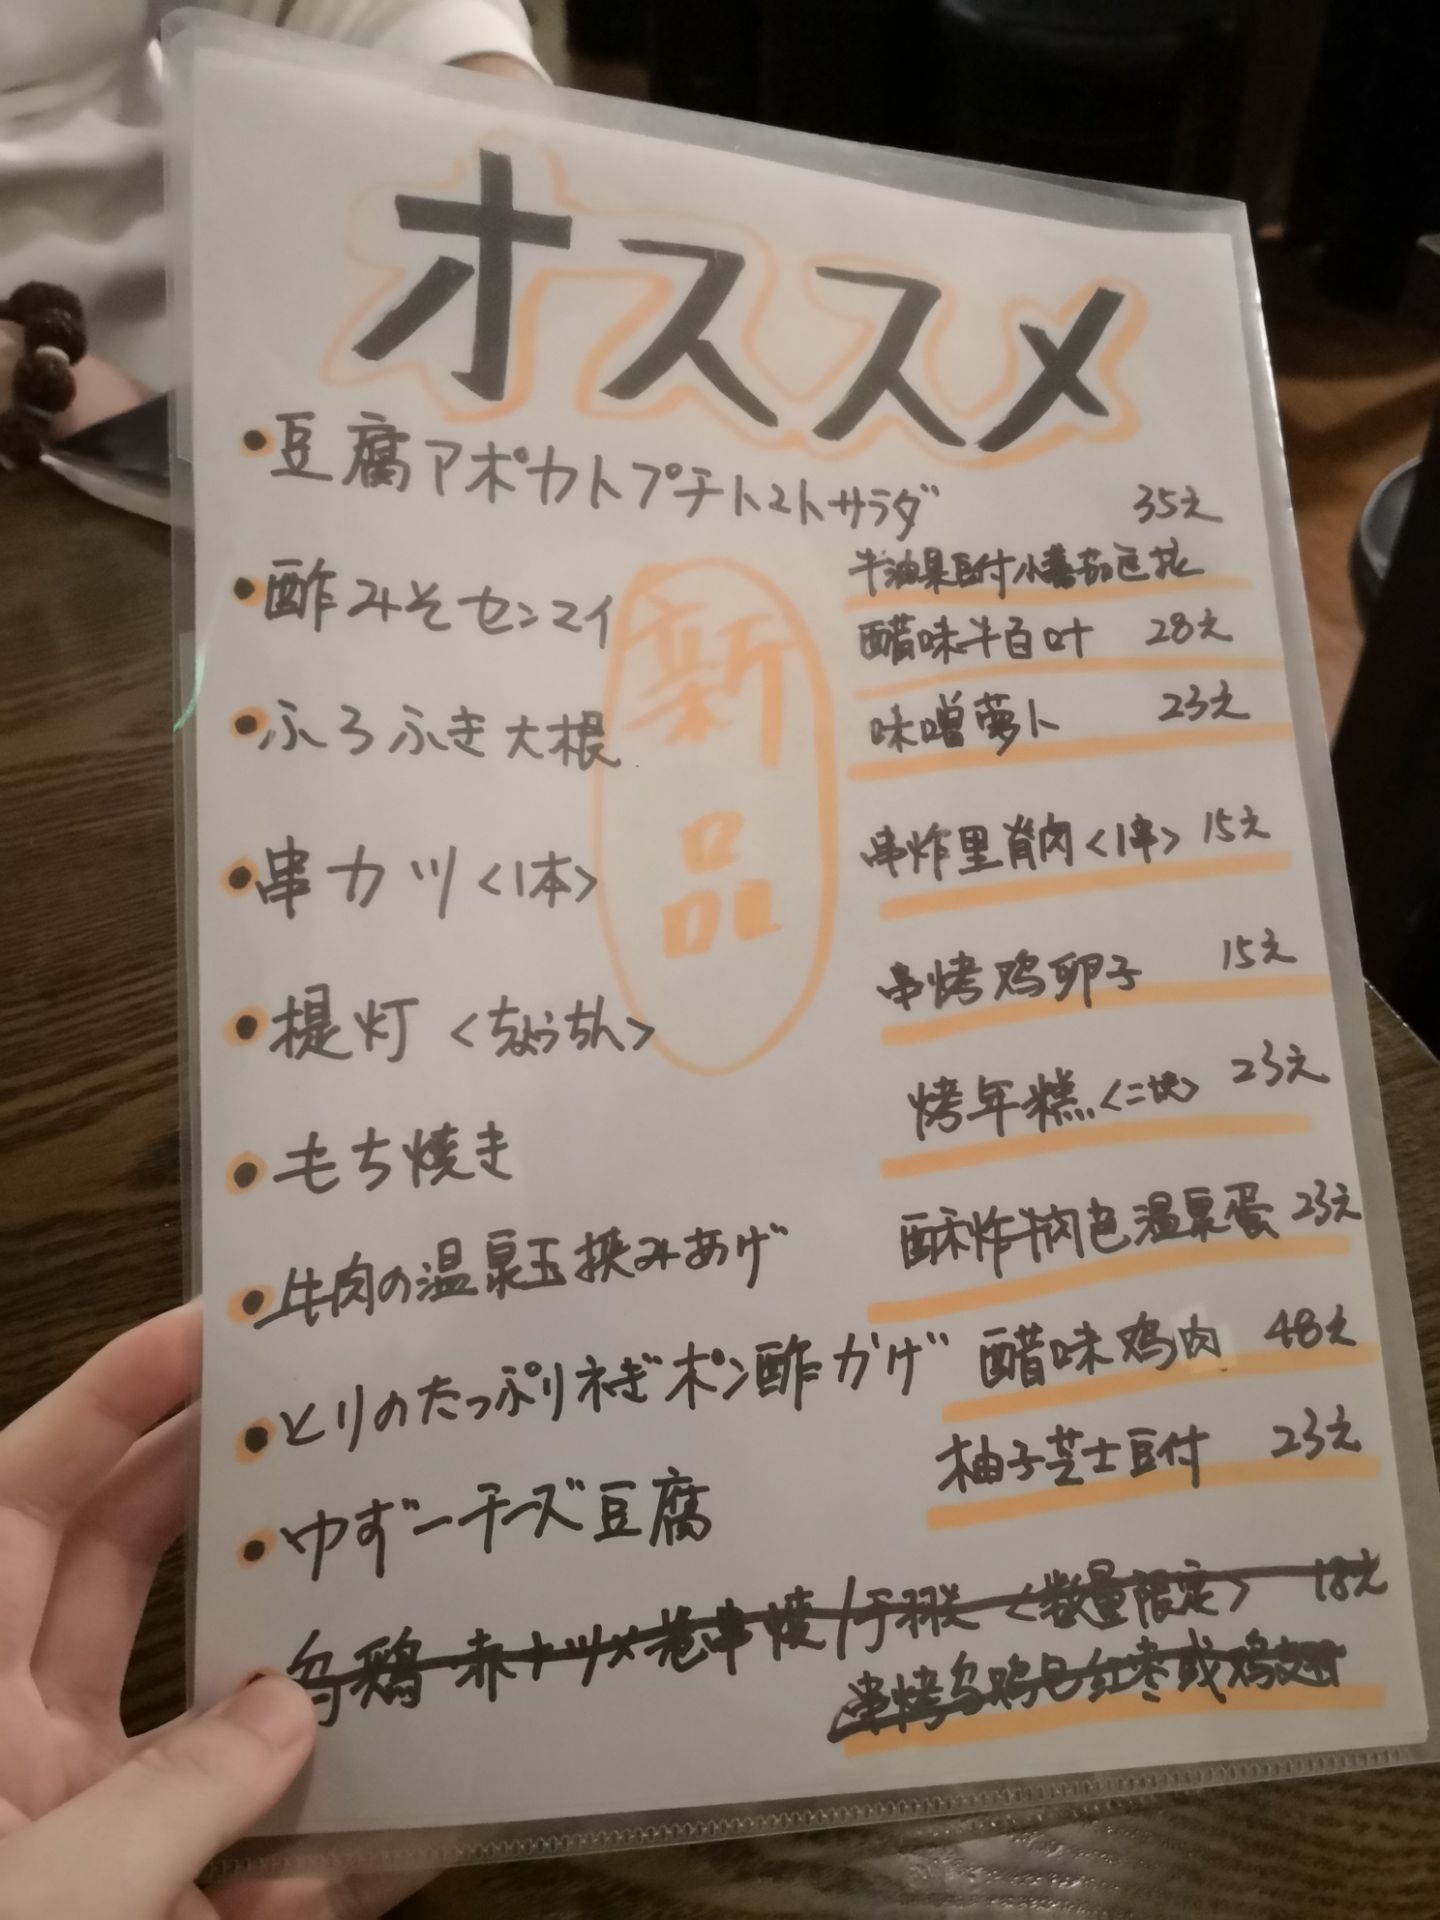 オススメ
新品
・豆腐アボカトプチトマトサラダ 35元
牛油果豆付小蕃茄色拉
・酢みそセンマイ 醋味牛百叶 28元
・ふろふき大根 味噌萝卜 23元
・串カツ<1本> 串炸里脊肉<1串> 15元
・提灯<ちょうちん> 串烤鸡卵子 15元
・もち焼き 烤年糕<二块> 23元
・牛肉の温泉玉挟みあげ 酥炸牛肉包温泉蛋 23元
・とりのたっぷりねぎポン酢かけ゛ 醋味鸡肉 48元
・ゆずーチーズ豆腐 柚子芝士豆付 23元
・乌鶏赤ナツメ巻串焼/手羽 <数量限定> 18元
串烤乌鸡包红枣或鸡翅